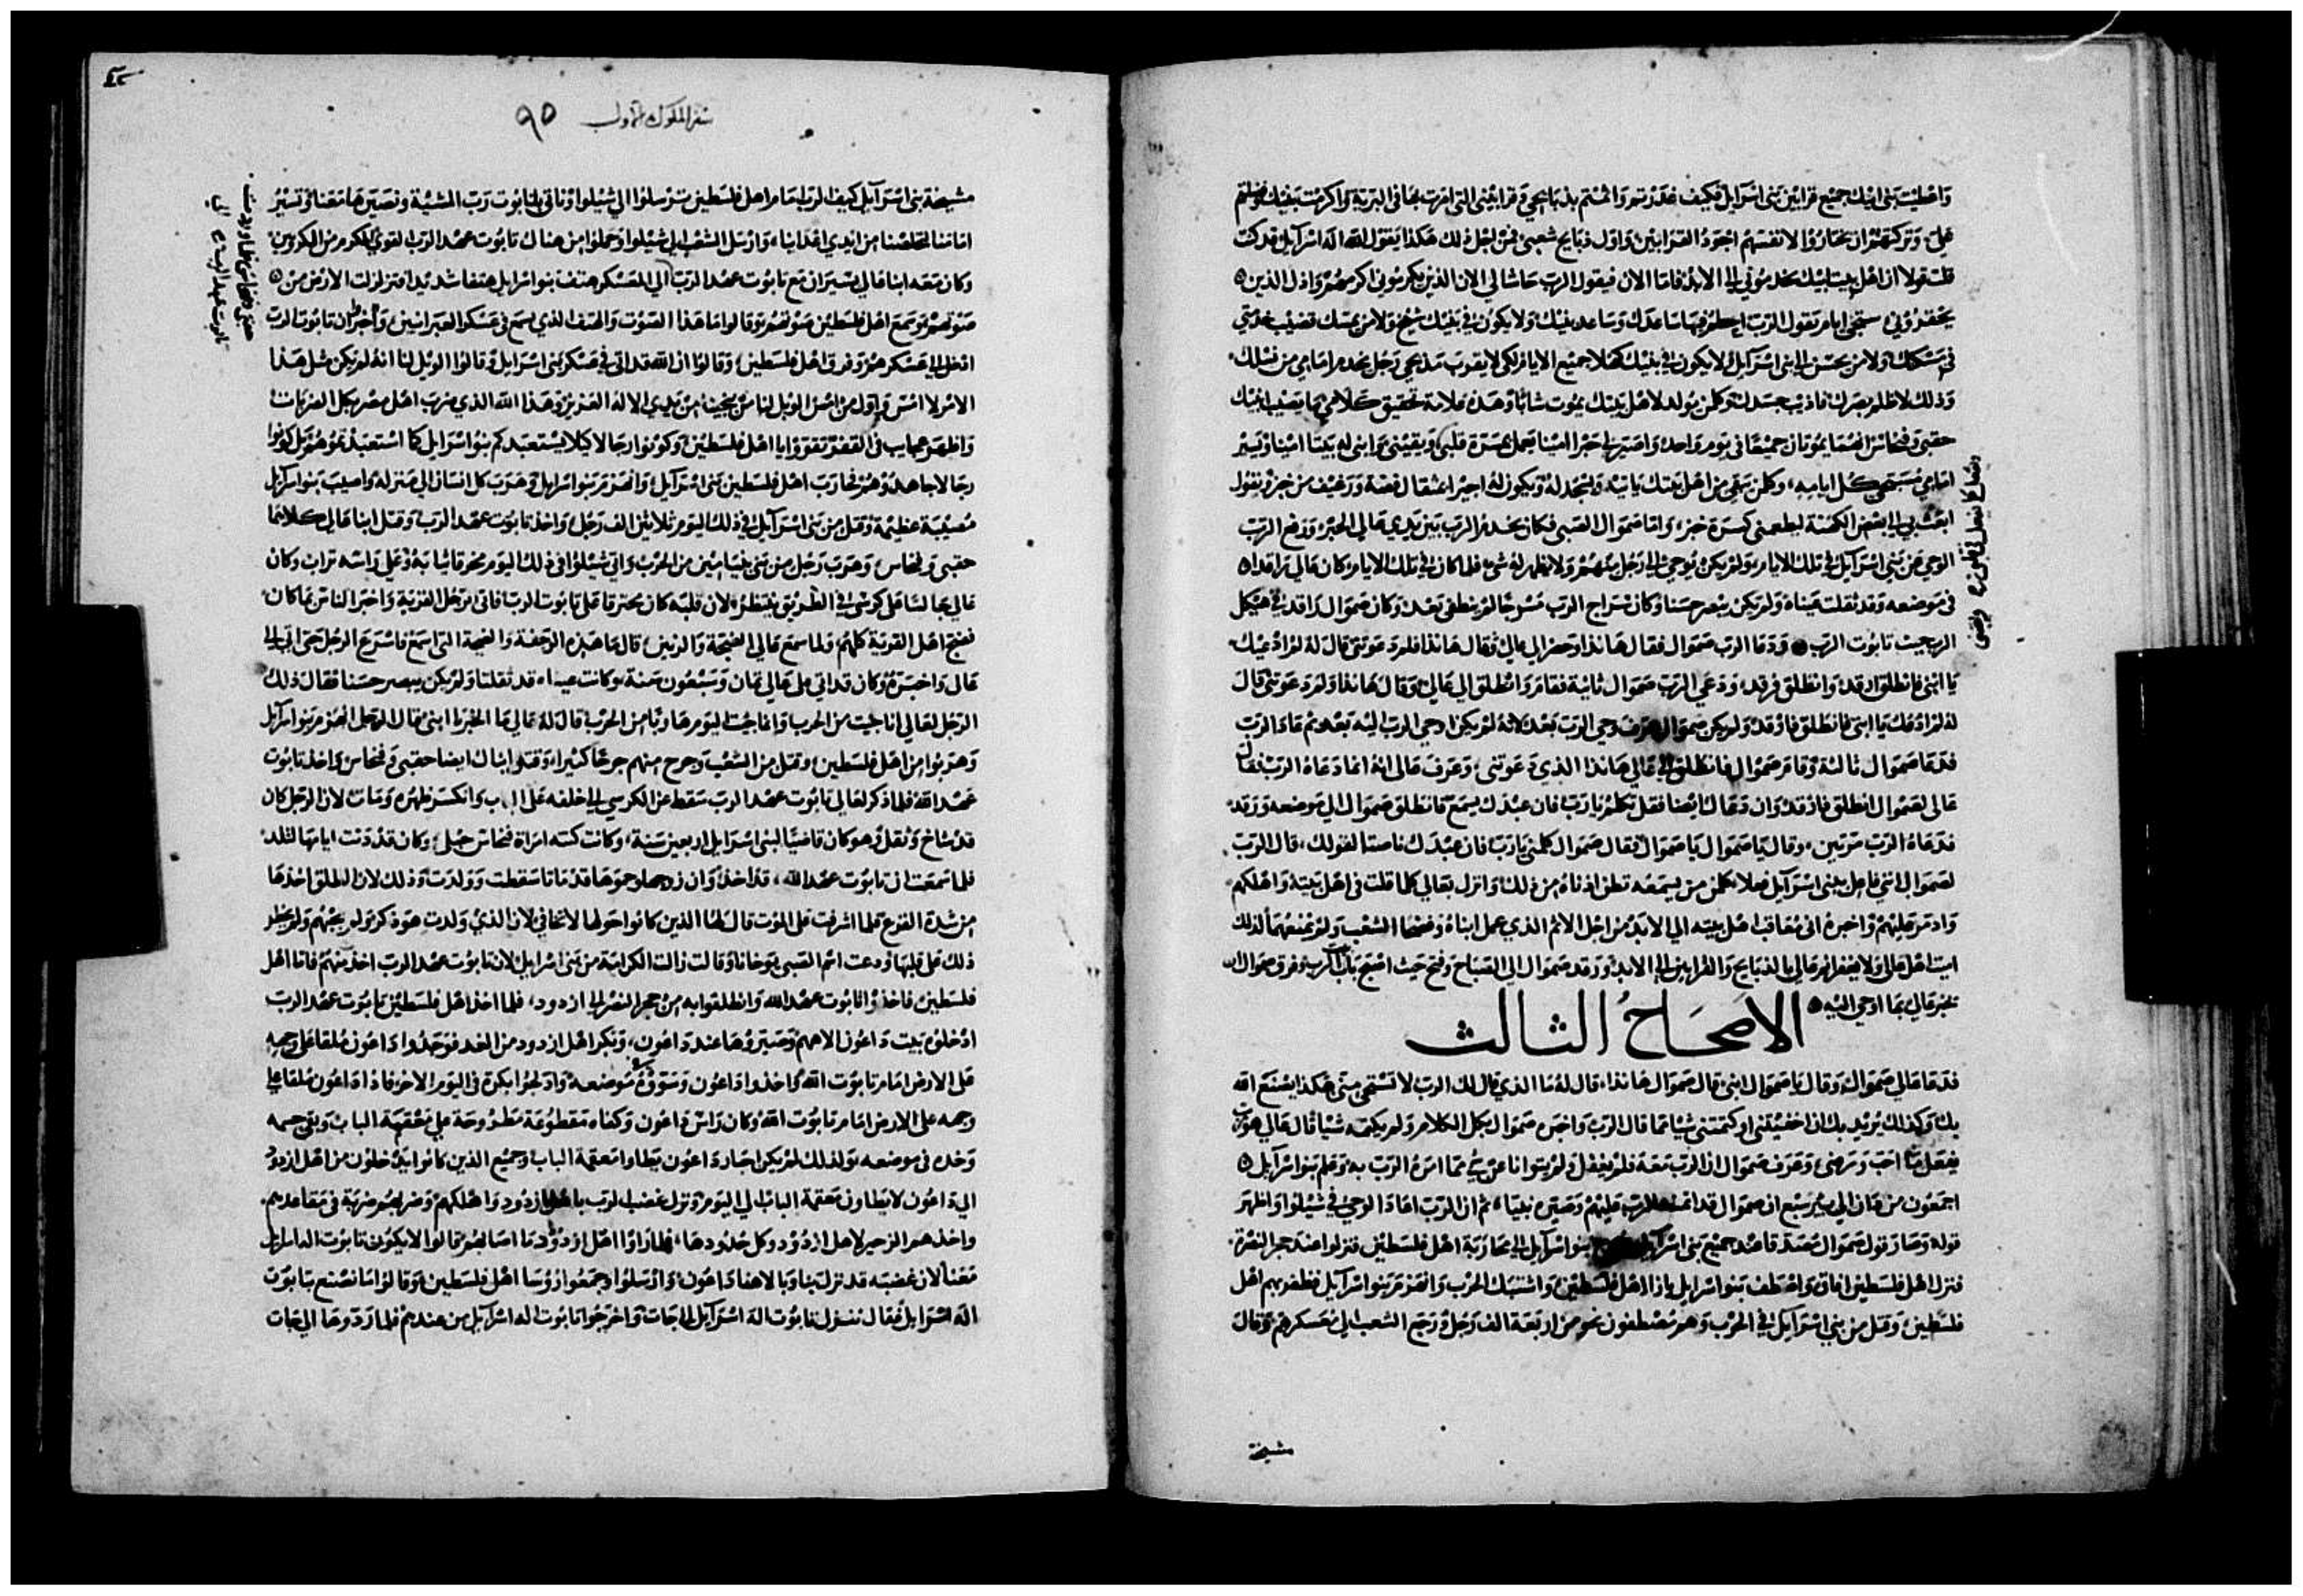 واعطيت بني ابيك جميع قرابين بني اسرايل فكيف غدرتم واثمتم بذبايحي وقرابيني التي امرت بها في البرية واكرمت بنيك وفضلتم
علي وتركتهم ان يختاروا لانفسهم اجود القرابين واول ذبايح شعبي فمن اجل ذلك هكذا يقول الله اله اسرايل قد كنت
قلت قولا ان اهل بيت ابيك يخدموني الي الابد فاما الان فيقول الرب حاشا لي الان الذين يكرموني اكرمهم واذل الذين
يحقروني ستجي ايام يقول الرب احطم فيها ساعدك وساعد بنيك ولا يكون في بنيك شيخ ولا من يمسك قضيب خدمتي
في مسكنك ولا من يحسن الي بني اسرايل لا يكون في بنيك كهلا جميع الايام لكي لا يقوب مذبحي رجل يخدم امامي من نسلك
وذلك لاظلم بصرك فاذيب جسدك وكلمن يولد لاهل بيتك يموت شابا وهذه علامة تحقيق كلامي ما يصيب ابنيك
حقبي وفنحاس انهما يموتان جميعا في يوم واحد واصير لي حبرا امينا يعمل بمسرة قلبي ويقيني وابني له بيتا امينا ويسير
امامي مسيحي كل ايامه وكلمن بقي من اهل بيتك ياتيه وليسجد له ويكون له اجيرا بمثقال فضة ورغيف من خبز ويقول
ابعث بي الي بعض الكهنة ليطعمني كسرة خبز واما صموال الصبي فكان يخدم الرب بين يدي عالي الحبر ورفع الرب
الوحي عن بني اسرايل في تلك الايام ولم يكن يوحي الي رجل منهم ولا يظهر له شيء فلما كان في تلك الايام وكان عالي راقدا
في موضعه وقد ثقلت عيناه ولم يكن يبصر حسنا وكان سراج الرب مسروجا لم ينطفي بعد وكان صموال راقد في هيكل
الرب حيث تابوت الرب ودعا الرب صموال فقال هانذا وحضر الي عالي وقال هانذا فلم دعوتني قال له لم ادعيك
يا ابني فانطلق ارقد وانطلق فرقد ودعي الرب صموال ثانية فقام وانطلق الي عالي وقال هانذا ولم دعوتني قال
له لم ادعك يا ابني فانطلق فارقد ولم يكن صموال يعرف وحي الرب بعد لانه لم يكن اوحي الرب اليه بعد ثم عاد الرب
فدعا صموال ثالثة وقام صموال فانطلق الي عالي هانذا الذي دعوتني وعرف عالي انه انما دعاه الرب فقال
عالي لصموال انطلق فارقد وان دعاك ايضا فقل تكلم يا رب فان عبدك يسمع فانطلق صموال الي موضعه ورقد
فدعاه الرب مرتين وقال يا صموال يا صموال فقال صموال كلمني يا رب فان عبدك ناصتا لقولك قال الرب
لصموال انني فاعل ببني اسرايل فعلا كلمن يسمعه تطن اذناه من ذلك وانزل بعالي كلما قلت في اهل بيته واهلكهم
وادمر عليهم واخبره اني معاقب اهل بيته الي الابد من اجل الاثم الذي عمل ابناه وفضحا الشعب ولم يمنعهما لذلك
ابيت اهل عالي ولا يغفر لهم عالي بالذبايح والقرابين الي الابد ورقد صموال الي الصباح وفتح حيث اصبح باب الرب وفرق صموال ان
يخبر عالي بما اوحي اليه
الاصحاح الثالث
فدعا عالي صموال وقال يا صموال ابني قال صموال هانذا قال له ما الذي قال لك الرب لا تستحي مني هكذا يصنع الله
بك وكذلك يزيد بك ان اخفيتني او كتمتني شيا مما قال الرب واخبر صموال بكل الكلام ولم يكتمه شيا قال عالي هو الرب
يفعل ما احب ورضي وعرف صموال ان الرب معه فلم يغفل ولم يتوانا عن شي مما امره الرب به وعلم بنو اسرايل
اجمعون من دان الي بير سبع ان صموال قد ائتمنه الرب عليهم وصيره نبيا ثم ان الرب اعاد الوحي في شيلوا واظهر
قوله وصار قول صموال مصدقا عند جميع بني اسرايل بنو اسرايل الي محاربة اهل فلسطين فنزلوا عند حجر النصرة
فنزل اهل فلسطين افاق واصطف بنو اسرايل بازا اهل فلسطين واشتبك الحرب وانهزم بنو اسرايل فظفر بهم اهل
فلسطين وقتل من بني اسرايل في الحرب وهم مصطفون نحو من اربعة الف رجل ورجع الشعب الي معسكرهم وقال
مشيخة
سفر الملوك الاول ٩٥
مشيخة بني اسرايل كيف الرب امام اهل فلسطين ترسلوا الي شيلوا وناتي بتابوت رب المشية ونصير ها معنا وتسير
امامنا لتخلصنا من ايدي اعدانا وارسل الشعب الي شيلوا وحملوا من هناك تابوت عهد الرب القوي المكرم من الكروبين
وكان معه ابنا عالي يسيران مع تابوت عهد الرب الي المعسكر هتف بنو اسرايل هتفا شديدا فتزلزلت الارض من
صوتهم وسمع اهل فلسطين صوتهم وقالوا ما هذا الصوت والهتف الذي يسمع في عسكر العبرانيين واخبروا ان تابوت الرب
ادخل الي عسكرهم وفرق اهل فلسطين وقالوا ان الله قد اتي في عسكر بني اسرايل وقالوا الويل لنا انه لم يكن مثل هذا
الامر لا امس واول من امس الويل لنا من ينجينا من يدي الاله العزيز وهذا الله الذي ضرب اهل مصر بكل الضربات
واظهر عجايب في القفر تقووا يا اهل فلسطين وكونوا رجالا كيلا يستعبدكم بنو اسرايل كما استعبدتموهم بل كونوا
رجالا جاهدوهم فحارب اهل فلسطين بني اسرايل وانهزم بنو اسرايل وهرب كل انسان الي منزله واصيب بنو اسرايل
مصيبة عظيمة وقتل من بني اسرايل في ذلك اليوم ثلاثين الف رجل واخذ تابوت عهد الرب وقتل ابنا عالي كلاهما
حقبي وفنحاس وهرب رجل من بني بنيامين من الحرب واتي شيلوا في ذلك اليوم مخرقا ثيابه وعلي راسه تراب وكان
عالي جالسا علي كرسي في الطريق ينتظر لان قلبه كان محترقا علي تابوت الرب فاتي الرجل القرية واخبر الناس بما كان
فضج اهل القرية كلهم ولما سمع عالي الضجة والرنين قال ما هذه الوجفة والضجة التي اسمع فاسرع الرجل حتى اتي الي
عالي واخبره وكان قد اتي علي عالي ثمان وسبعون سنة وكانت عيناه قد ثقلتا ولم يكن يبصر حسنا فقال ذلك
الرجل لعالي انا جيت من الحرب وانما جيت اليوم هاربا من الحرب قال له عالي ما الخبر يا ابني فقال الرجل انهزم بنو اسرايل
وهربوا من اهل فلسطين وقتل من الشعب وجرح منهم جرحا كثيرا وقتلوا ابناك ايضا حقبي وفنحاس واخذ تابوت
عهد الله فلما ذكر لعالي تابوت عهد الرب سقط عن الكرسي الي خلفه علي الباب وانكسر ظهره ومات لان الرجل كان
قد شاخ وثقل وهو كان قاضيا لبني اسرايل اربعين سنة وكانت كنته امراة فنحاس حبلي وكان قد دنت ايامها لتلد
فلما سمعت ان تابوت عهد الله قد اخذ وان زوجها وحموها قد ماتا سقطت وولدت وذلك لان الطلق اخذها
من شدة الفزع فلما اشرفت علي الموت قال لها الذين كانوا حولها لا تخافي لان الذي ولدت هو ذكر ولم يجبهم ولم يخطر
ذلك علي قلبها ودعت اسم الصبي يوخاناد وقالت زالت الكرامة من بني اسرايل لان تابوت عهد الرب اخذ منهم فاما اهل
فلسطين فاخذوا تابوت عهد الله وانطلقوا به من حجر النصر الي ازدود فلما اخذ اهل فلسطين تابوت عهد الرب
ادخلوه بيت داعون الاههم وصيروها عند داعون وبكر اهل ازدود من الغد فوجدوا داعون ملقا علي وجهه
علي الارض امام تابوت الله فاخذوا داعون وسووه موضعه وادلجوا بكرة في اليوم الاخر فاذا داعون ملقا علي
وجهه علي الارض امام تابوت الله وكان راس داعون وكفاه مقطوعة مطروحة علي عتبة الباب وبقي جسمه
وحده في موضعه ولذلك لم يكن احبار داعون يطاوا عتبة الباب وجميع الذين كانوا يدخلون من اهل ازدود
الي داعون لا يطاون عتبة الباب الي اليوم ونزل غضب الرب باهل ازدود واهلكهم وضربهم ضربة في مقاعدهم
واخذهم الزحير لاهل ازدود وكل حدودها فلما راوا اهل ازدود ما اصابهم قالوا لا يكون تابوت اله اسرايل
معنا لان غضبه قد نزل بنا وبالاهنا داعون وارسلوا وجمعوا روسا اهل فلسطين وقالوا ما نصنع بتابوت
اله اسرايل فقال ننزل تابوت اله اسرايل الي جات واخرجوا تابوت اله اسرايل من عندهم فلما ردوها الي جات